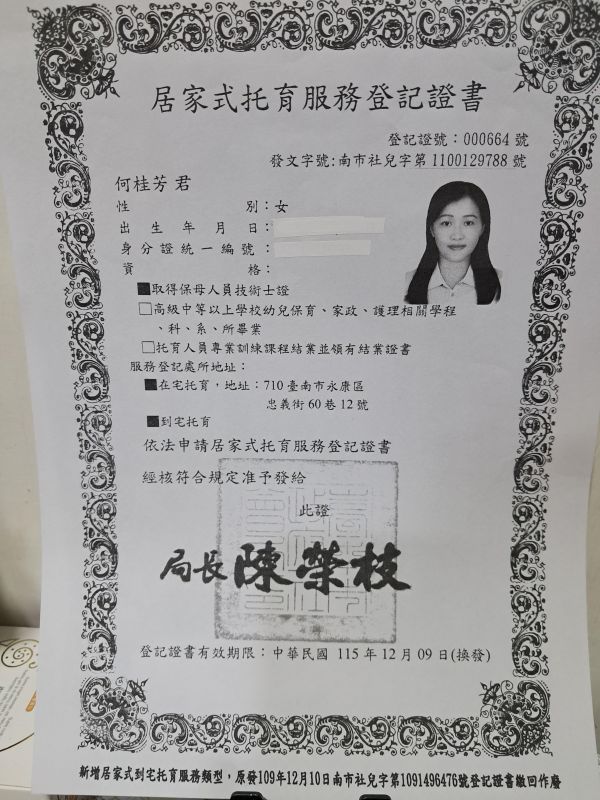 居家式托育服務登記證書
登記證號：000664 號
發文字號:南市社兒字第 1100129788 號
何桂芳 君
性 別：女
出 生 年 月 日：
身 分 證 統 一 編 號 ：
資 格：
■取得保母人員技術士證
□高級中等以上學校幼兒保育、家政、護理相關學程
、科、系、所畢業
□托育人員專業訓練課程結業並領有結業證書
服務登記處所地址：
■在宅托育，地址：710 臺南市永康區
忠義街 60 巷 12 號
■到宅托育
依法申請居家式托育服務登記證書
經核符合規定准予發給
此證
局長 陳榮枝
登記證書有效期限：中華民國 115 年 12 月 09 日(換發)
新增居家式到宅托育服務類型，原發109年12月10日南市社兒字第1091496476號登記證書繳回作廢